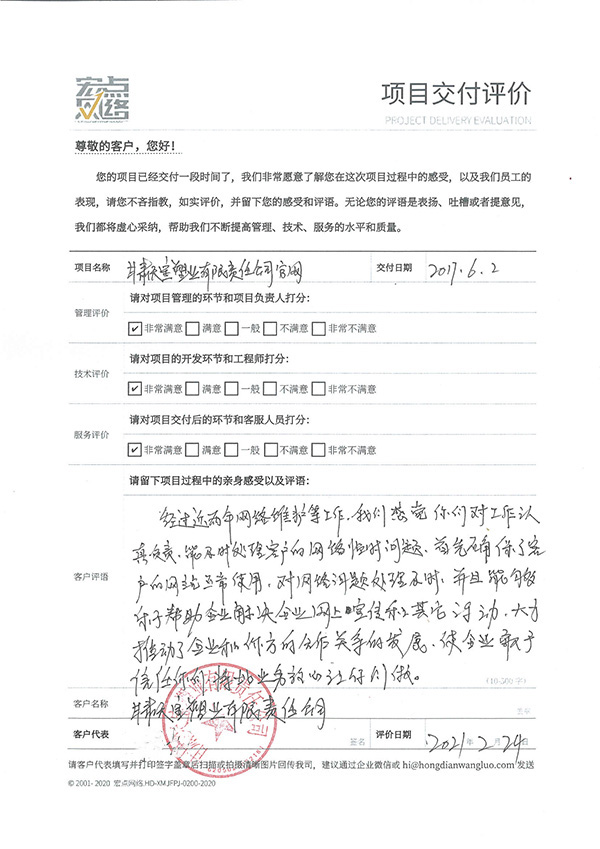 宏点网络
项目交付评价
PROJECT DELIVERY EVALUATION
尊敬的客户，您好！
您的项目已经交付一段时间了，我们非常愿意了解您在这次项目过程中的感受，以及我们员工的
表现，请您不吝指教，如实评价，并留下您的感受和评语。无论您的评语是表扬、吐槽或者提意见，
我们都将虚心采纳，帮助我们不断提高管理、技术、服务的水平和质量。
项目名称 甘肃天宝塑业有限责任公司官网 交付日期 2017.6.2
管理评价 请对项目管理的环节和项目负责人打分：
✔非常满意 满意 一般 不满意 非常不满意
技术评价 请对项目的开发环节和工程师打分：
✔非常满意 满意 一般 不满意 非常不满意
服务评价 请对项目交付后的环节和客服人员打分：
✔非常满意 满意 一般 不满意 非常不满意
请留下项目过程中的亲身感受以及评语：
客户评语
经过近两年网络维护等工作，我们感觉你们对工作认
真负责，能及时处理客户的网络临时问题，首先确保了客
户的网站正常使用，对网络问题处理及时，并且能够
帮助企业解决企业网上宣传和其它活动，大力
推动了企业和你方的合作关系的发展，使企业敢于
信任你们，将此业务放心让你们做。
(10-500 字)
客户名称 甘肃天宝塑业有限责任公司 签章
客户代表 签名 评价日期 2021年2月24
请客户代表填写并打印签字盖章后扫描或拍摄清晰图片回传我司，建议通过企业微信或 hi@hongdianwangluo.com 发送
© 2001- 2020 宏点网络.HD-XMJFPJ-0200-2020